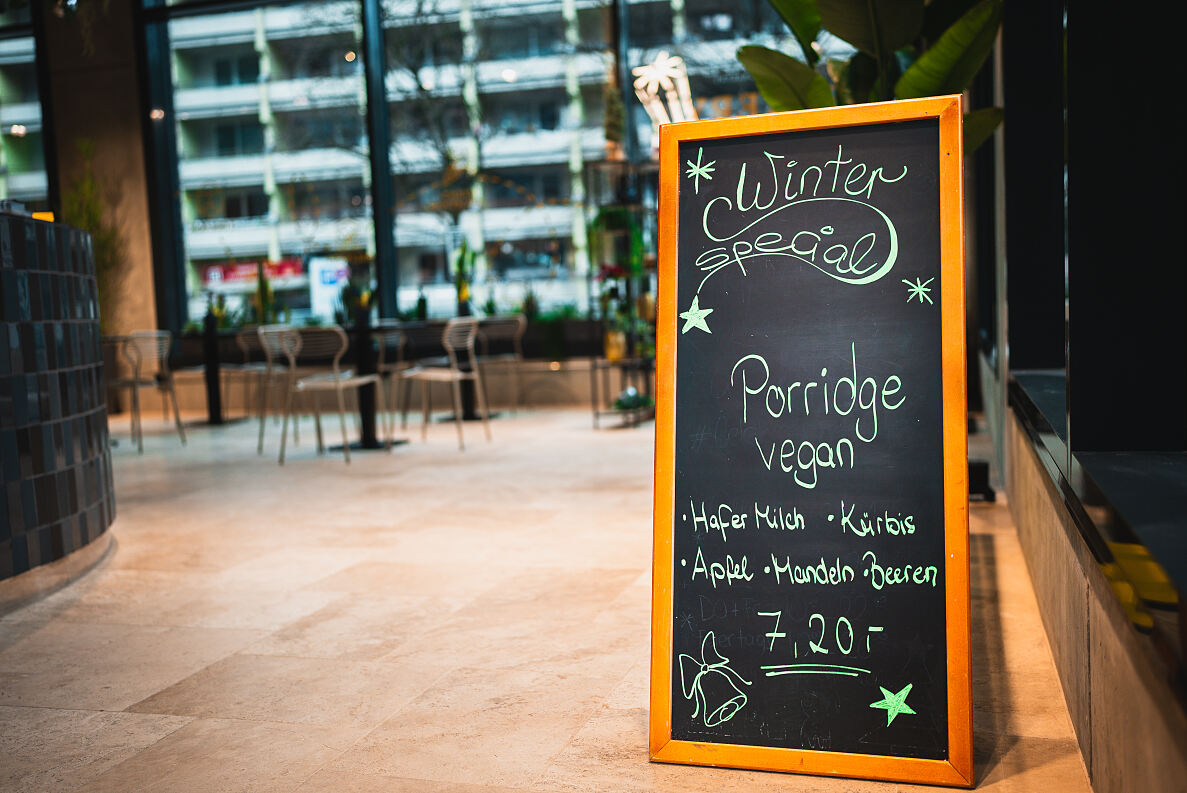 Winter
special
Porridge
vegan
· Hafer Milch · Kürbis
· Apfel · Mandeln · Beeren
7,20 -